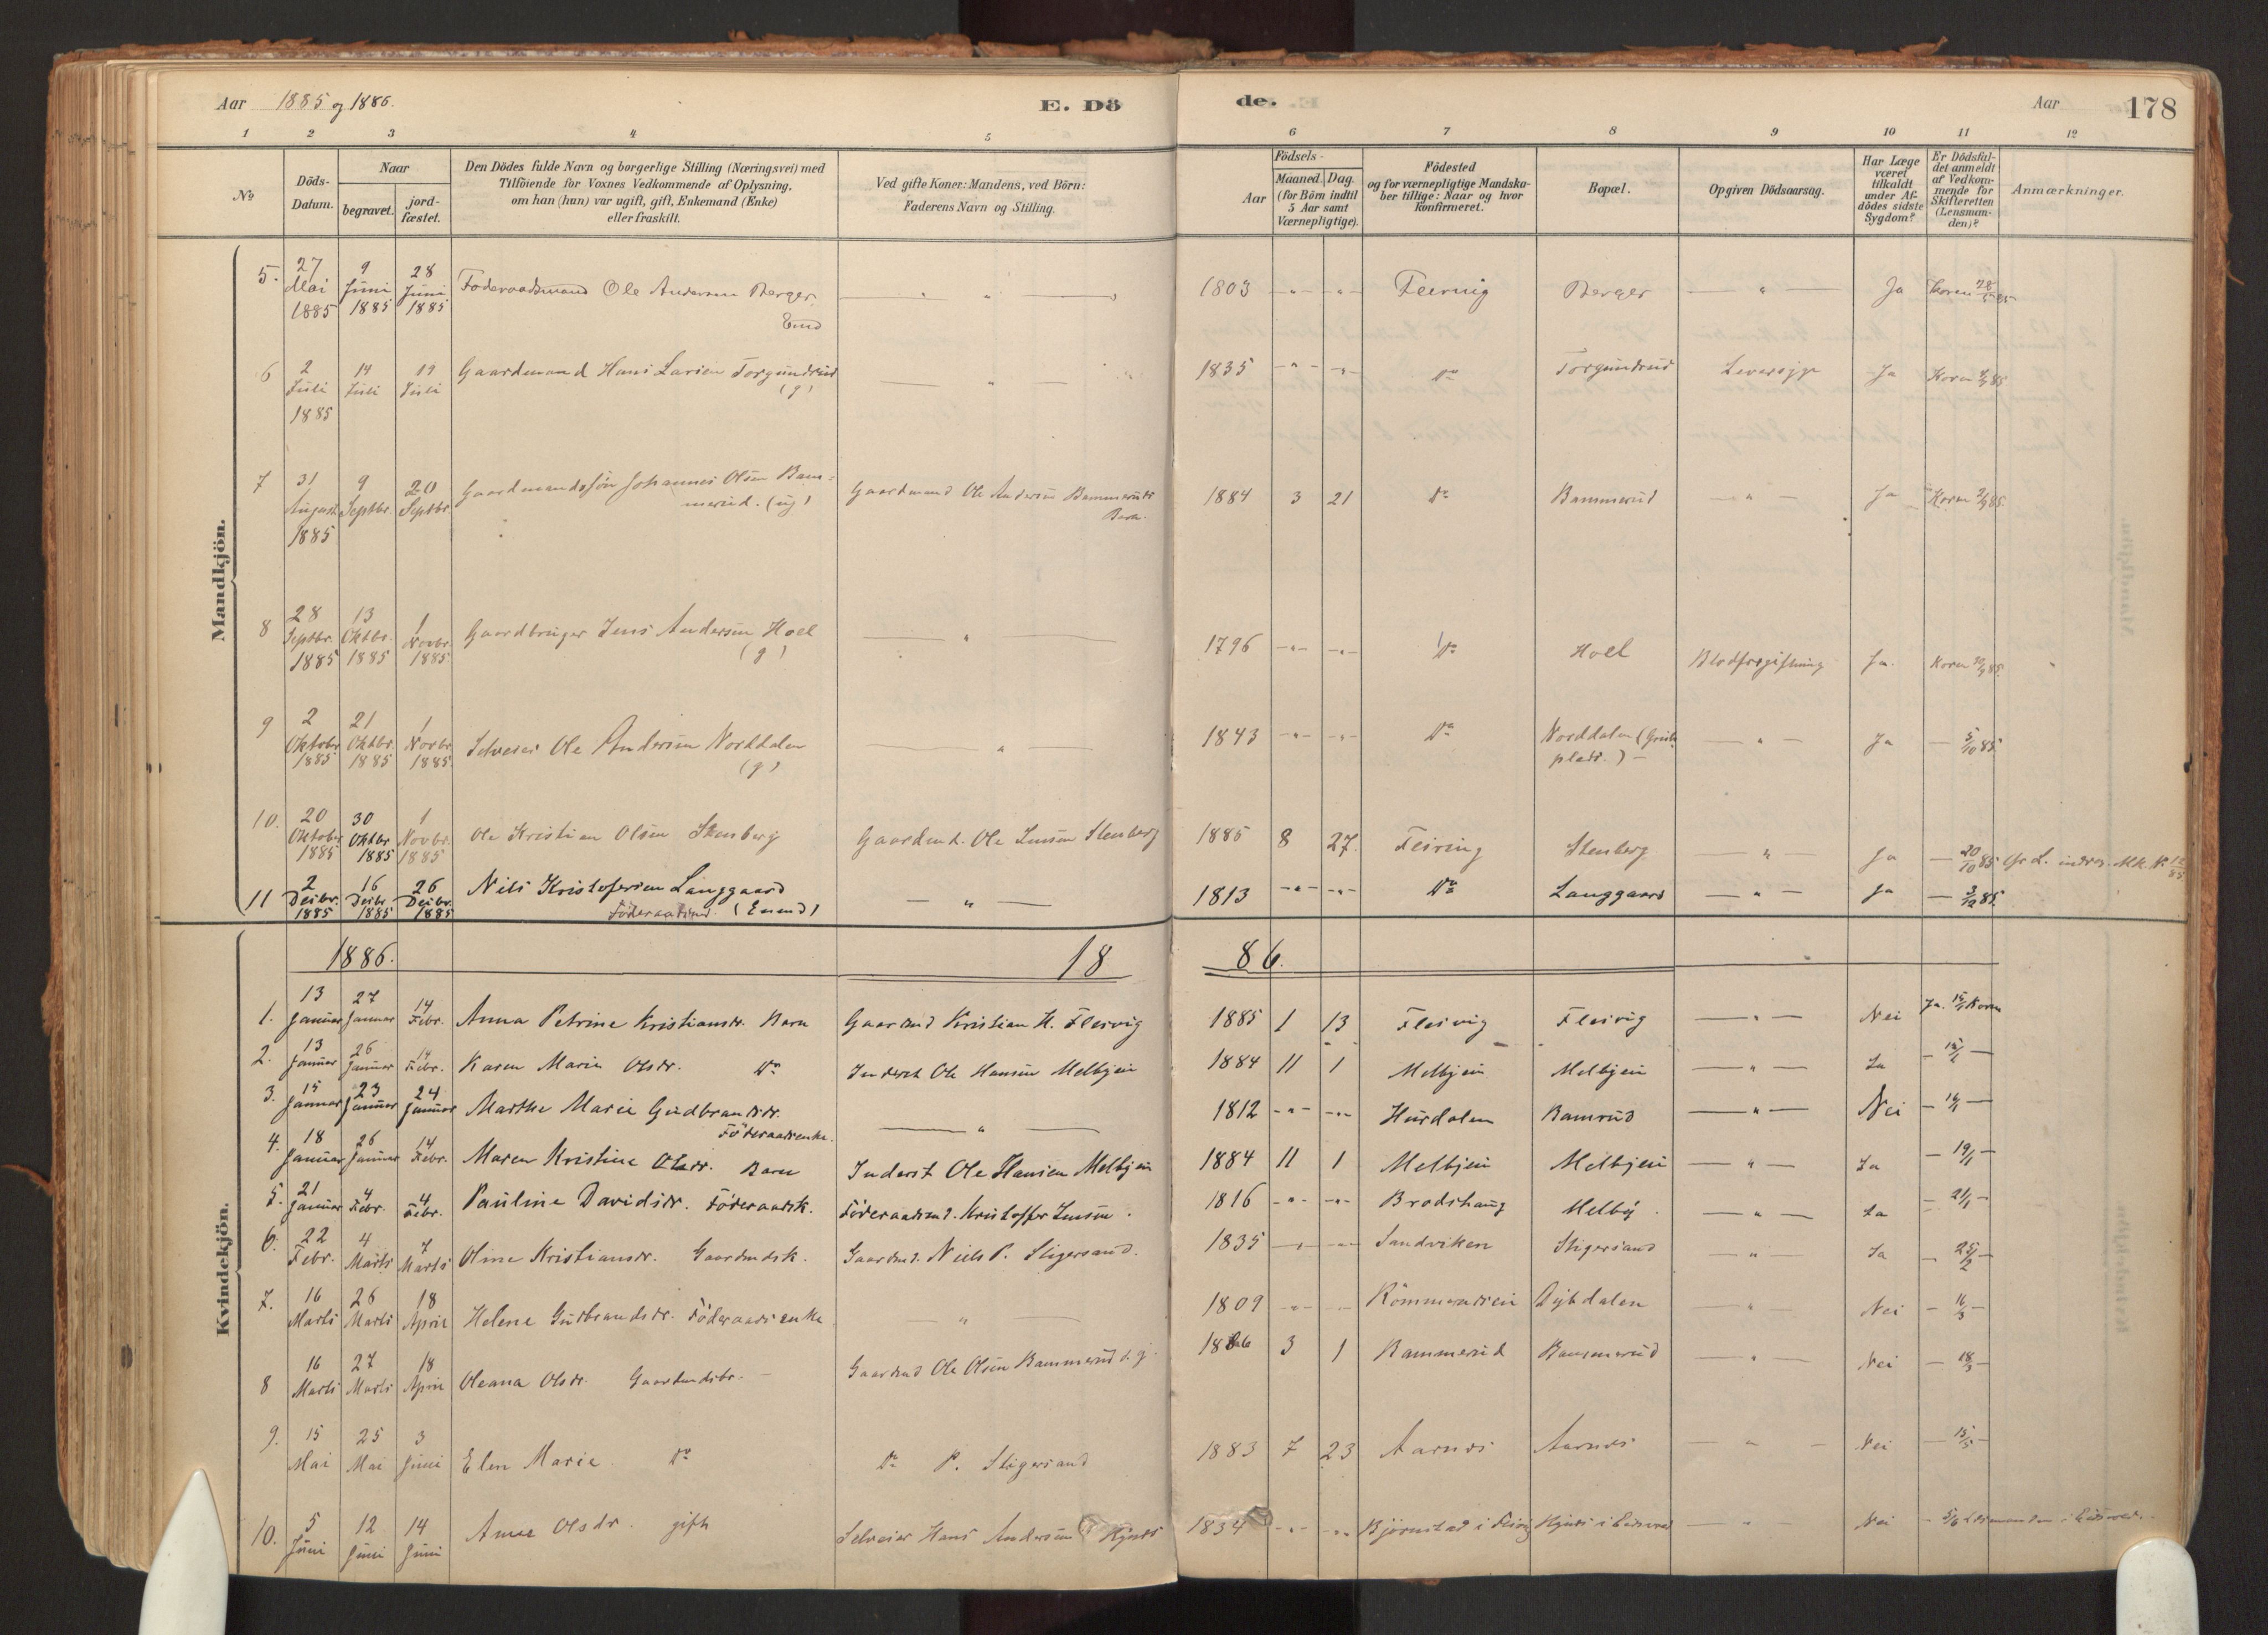 Aar 1885 og 1886. E. Dö de. Aar 178
1 2 3 4 5 6 7 8 9 10 11 12
No
Döds-Datum.
Naar
begravet.
jordfæstet.
Den Dödes fulde Navn og borgerlige Stilling (Næringsvei) med
Tilföiende for Voxnes Vedkommende af Oplysning,
om han (hun) var ugift, gift, Enkemand (Enke)
eller fraskilt.
Ved gifte Koner: Mandens, ved Börn:
Faderens Navn og Stilling.
Födsels-
Aar
Maaned. Dag.
(for Börn indtil
5 Aar samt
Værnepligtige).
Födested
og for værnepligtige Mandska-
ber tillige: Naar og hvor
konfirmeret.
Bopæl.
Opgiven Dödsaarsag.
Har Læge
været
tilkaldt
under Af-
dödes sidste
Sygdom?
Er Dödsfal-
det anmeldt
af Vedkom-
mende for
Skifteretten
(Lensman-
den)?
Anmærkninger.
Mandkjön.
5. 27 Mai 1885 9 Juni 1885 28 Juni 1885 Föderaadsmand Ole Andersen Berger Emd — " — 1803 - " - - " - Feiring Berger — " — Ja Koren 28/5 85
6 2 Juli 1885 14 Juli 19 Juli Gaardmand Hans Larsen Torgundrud (g) — " — 1835 - " - - " - Do Torgundrud Leversyge Ja Koren 85
7 31 August 1885 9 Septbr. 20 Septbr. Gaardmandssön Johannes Olsen Bam=
merud. (ug) Gaardmand Ole Andersen Bammeruds
Barn. 1884 3 21 Do Bammerud — " — Ja Koren 2/9 85.
8 28 Septbr. 1885 13 Oktbr. 1885 1 Novbr. 1885 Gaardbruger Jens Andersen Hoel (g) — " — 1796 - " - - " - Do Hoel Blodforgiftning Ja. Koren 85.
9 2 Oktober 1885 21 Oktbr. 1885 1 Novbr. 1885 Selveier Ole Andersen Norddalen (g) — " — 1843 - " - - " - Do Norddalen
plads.) — " — Ja — 5/10 85
10. 20 Oktober 1885 30 Oktbr 1885 1 Novbr. 1885 Ole Kristian Olsen Stenberg Gaardmd. Ole Jensen Stenberg 1885 8 27. Feiring Stenberg — " — Ja — 20/10 85
11 2 Decbr. 1885 16 Decbr. 1885 26 Decbr. 1885 Nils Kristofersen Langgaard
Föderaadsmd. (Enemd) — " — 1813 - " - - " - Do Langgaard — " — Ja — 3/12 85.
Kvindekjön.
1886. 18 86.
1. 13 Januar 27 Januar 14 Febr. Anna Petrine Kristiansdr. Barn Gaardmd Kristian H. Flesvig 1885 1 13 Flesvig Flesvig — " — Nei Ja. 15/1 Koren
2. 13 Januar 26 Januar 14 Febr. Karen Marie Olsdr. Do Inderst Ole Hansen Melbyeie 1884 11 1 Melbyeie Melbyeie — " — Ja
3. 15 Januar 23 Januar 24 Januar Marthe Marie Gudbrandsdr.
Föderaadsenke. — " — 1812 - " - - " - Hurdalen Bamrud — " — Nei
4. 18 Januar 26 Januar 14 Febr. Maren Kristine Olsdr. Barn Inderst Ole Hansen Melbyeie 1884 11 1 Melbyeie Melbyeie — " — Ja — 19/1 —
5. 21 Januar 4 Febr. 4 Febr. Pauline Davidsdr. Föderaadsk. Föderaadsmd. Kristoffer Jensen. 1816 - " - - " - Brodshaug Melby. — " — Ja — 21/1 —
6. 22 Febr. 4 Marts 7 Marts Oline Kristiansdr. Gaardmdsk. Gaardmd. Niels P. Stigersand. 1835 - " - - " - Sandviken Stigersand — " — Ja — 25/2 —
7. 16 Marts 26 Marts 18 April Helene Gudbrandsdr. Föderaadsenke — " — 1809 - " - - " - Dybdalen — " — Nei — 16/3 —
8 16 Marts 27 Marts 18 April Oleana Olsdr. Gaardmdsbr. — Gaardmd Ole Olsen Bammerud 3 1 Bammerud Bammerud — " — Nei — 18/3 —
9. 15 Mai 25 Mai 3 Juni Elen Marie Do Do P. Stigersand 1883 7 23 Aarnæs Aarnæs — " — Nei — 15/5 —
10. 5 Juni 12 Juni 14 Juni Anne Olsdr. gift Selveier Hans Andersen 1834 - " - - " - Björnstad i Feirig " Nei